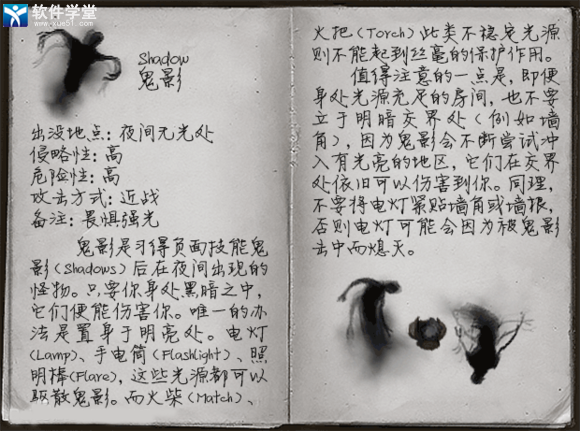 软件学堂
www.xue51.com
Shadow
鬼影
出没地点：夜间无光处
侵略性：高
危险性：高
攻击方式：近战
备注：畏惧强光
鬼影是习得负面技能鬼
影(Shadows)后在夜间出现的
怪物。只要你身处黑暗之中，
它们便能伤害你。唯一的办
法是置身于明亮处。电灯
(Lamp)、手电筒(Flashlight)、照
明棒(Flare)，这些光源都可以
驱散鬼影。而火柴(Match)、
火把(Torch)此类不稳定光源
则不能起到丝毫的保护作用。
值得注意的一点是，即便
身处光源充足的房间，也不要
立于明暗交界处(例如墙
角)，因为鬼影会不断尝试冲
入有光亮的地区，它们在交界
处依旧可以伤害到你。同理，
不要将电灯紧贴墙角或墙根，
否则电灯可能会因为被鬼影
击中而熄灭。